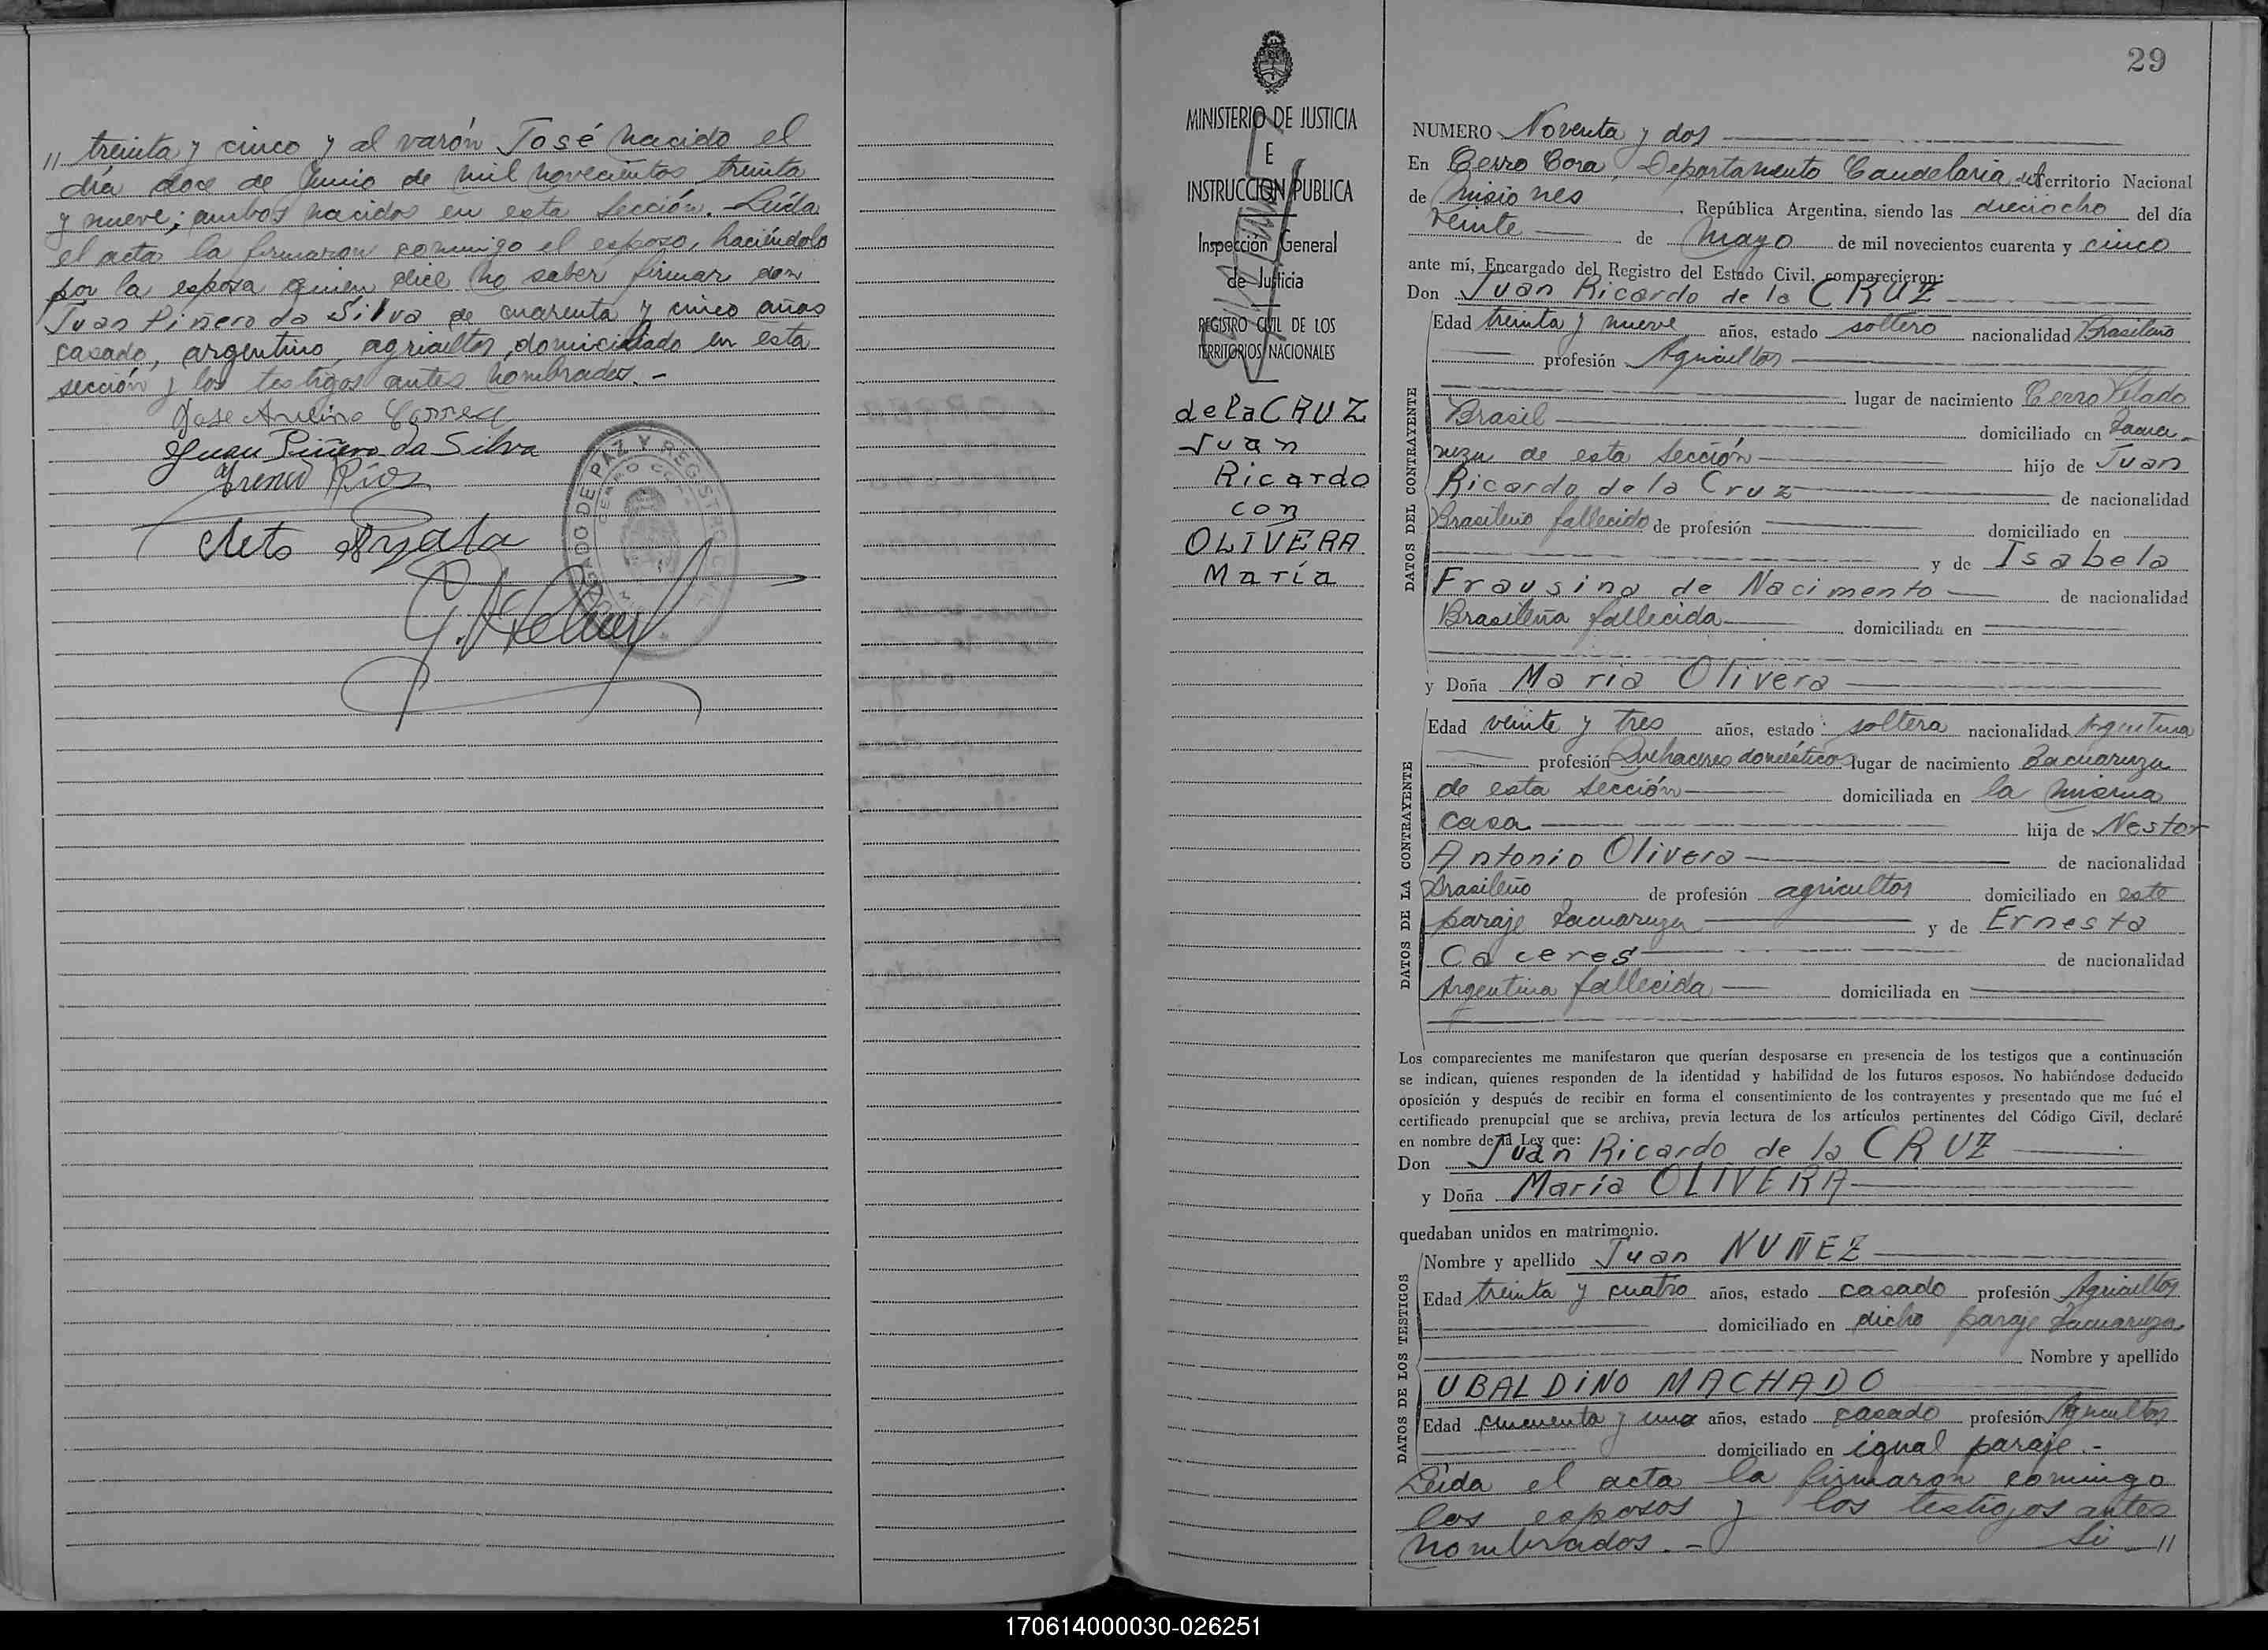 " treinta y cinco y al varón José nacido el
día doce de Junio de mil novecientos treinta
y nueve; ambos nacidos en esta sección. - Leída
el acta la firmaron conmigo el esposo, haciéndolo
por la esposa quien dice no saber firmar don
Juan Piñero da Silva de cuarenta y cinco años
casado, argentino, agricultor, domiciliado en esta
sección y los testigos antes nombrados. -
Juan Piñero da Silva
Ríos
Cleto Ayala
JUZGADO DE PAZ Y REGISTRO CIVIL
CERRO CORÁ
MINISTERIO DE JUSTICIA
E
INSTRUCCION PUBLICA
Inspección General
de Justicia
REGISTRO CIVIL DE LOS
TERRITORIOS NACIONALES
de la CRUZ
Juan
Ricardo
con
OLIVERA
María
29
NUMERO Noventa y dos
En Cerro Cora, Departamento Candelaria del Territorio Nacional
de Misiones, República Argentina, siendo las dieciocho del día
veinte de Mayo de mil novecientos cuarenta y cinco
ante mí, Encargado del Registro del Estado Civil, comparecieron:
Don Juan Ricardo de la CRUZ
DATOS DEL CONTRAYENTE
Edad treinta y nueve años, estado soltero nacionalidad Brasileño
profesión Agricultor
lugar de nacimiento Cerro Pelado
Brasil domiciliado en Tacua-
ruzu de esta sección hijo de Juan
Ricardo de la Cruz de nacionalidad
Brasileño fallecido de profesión domiciliado en
y de Isabela
Frausina de Nacimento de nacionalidad
Brasileña fallecida domiciliada en
y Doña Maria Olivera
DATOS DE LA CONTRAYENTE
Edad veinte y tres años, estado soltera nacionalidad Argentina
profesión Quehaceres domésticos lugar de nacimiento Tacuaruzu
de esta sección domiciliada en la misma
casa hija de Nestor
Antonio Olivera de nacionalidad
Brasileño de profesión agricultor domiciliado en este
paraje Tacuaruzu y de Ernesta
Caceres de nacionalidad
Argentina fallecida domiciliada en
Los comparecientes me manifestaron que querían desposarse en presencia de los testigos que a continuación
se indican, quienes responden de la identidad y habilidad de los futuros esposos. No habiéndose deducido
oposición y después de recibir en forma el consentimiento de los contrayentes y presentado que me fué el
certificado prenupcial que se archiva, previa lectura de los artículos pertinentes del Código Civil, declaré
en nombre de la Ley que:
Don Juan Ricardo de la CRUZ
y Doña María OLIVERA
quedaban unidos en matrimonio.
DATOS DE LOS TESTIGOS
Nombre y apellido Juan NUÑEZ
Edad treinta y cuatro años, estado casado profesión Agricultor
domiciliado en dicho paraje Tacuaruzu
Nombre y apellido
UBALDINO MACHADO
Edad cincuenta y una años, estado casado profesión Agricultor
domiciliado en igual paraje. -
Leída el acta la firmaron conmigo
los esposos y los testigos antes
nombrados. - Si - "
170614000030-026251